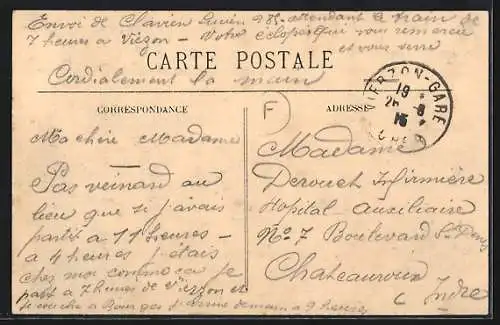 Envoi de Clavier Lucien 285 attendant le train de
7 heures à Vierzon — Votre éclopé qui vous remercie
et vous serre
CARTE POSTALE
Cordialement la main
CORRESPONDANCE
ADRESSE
F
VIERZON-GARE
Ma chère Madame
Pas veinard au
lieu que si j'avais
partit a 11 heures —
a 4 heures j'étais
chez moi comme ça je
part a 7 heures de Vierzon et
je couche a Bourges j'arrive demain a 9 heures
Madame
Derouet Infirmière
Hopital Auxiliaire
No 7 Boulevard St Denis
Chateauroux
Indre